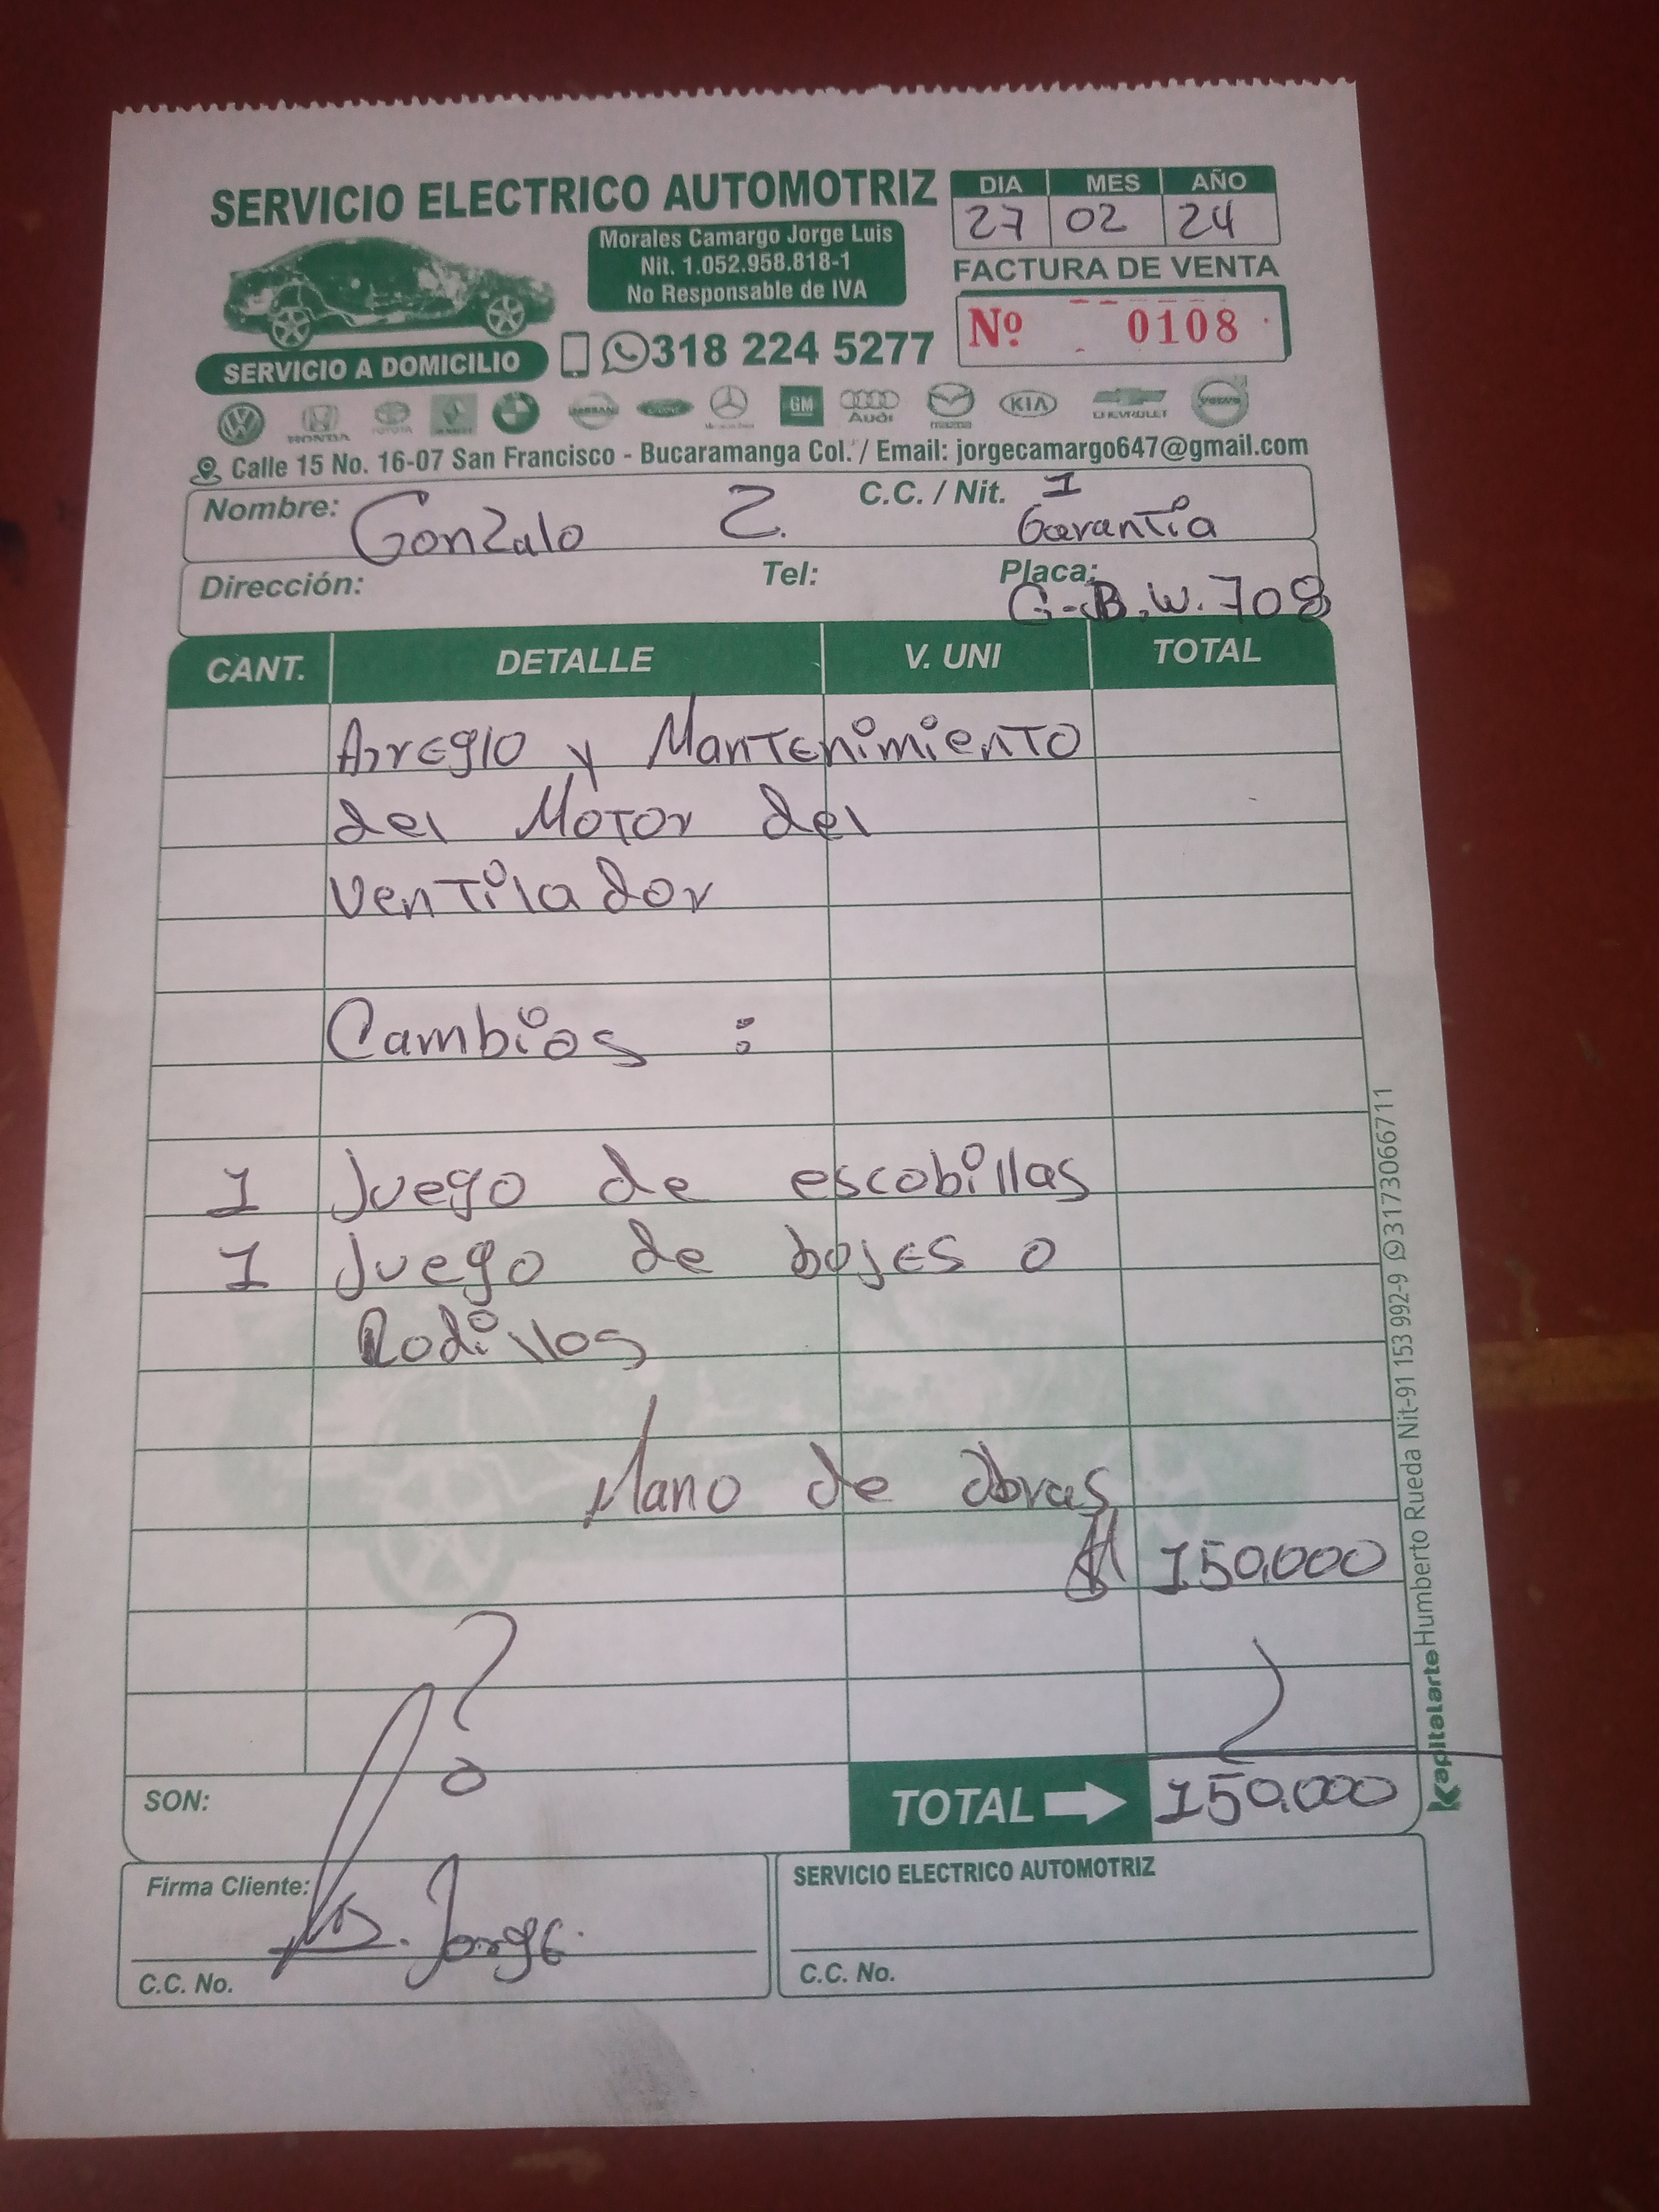 SERVICIO ELECTRICO AUTOMOTRIZ
DIA MES AÑO
27 02 24
Morales Camargo Jorge Luis
Nit. 1.052.958.818-1
No Responsable de IVA
FACTURA DE VENTA
Nº 0108
SERVICIO A DOMICILIO
318 224 5277
HONDA TOYOTA NISSAN Ford GM Audi mazda KIA CHEVROLET VOLVO
Calle 15 No. 16-07 San Francisco - Bucaramanga Col. / Email: jorgecamargo647@gmail.com
Nombre: Gonzalo Z. C.C. / Nit. 1
Garantia
Dirección: Tel: Placa: G.B.W.708
CANT. DETALLE V. UNI TOTAL
Arreglo y Mantenimiento
del Motor del
Ventilador
Cambios :
1 Juego de escobillas
1 Juego de bojes o
Rodillos
Mano de obras
$ 150.000
SON: TOTAL 150.000
Firma Cliente: Jorge.
C.C. No.
SERVICIO ELECTRICO AUTOMOTRIZ
C.C. No.
Kapitalarte Humberto Rueda Nit-91 153 992-9 3173066711